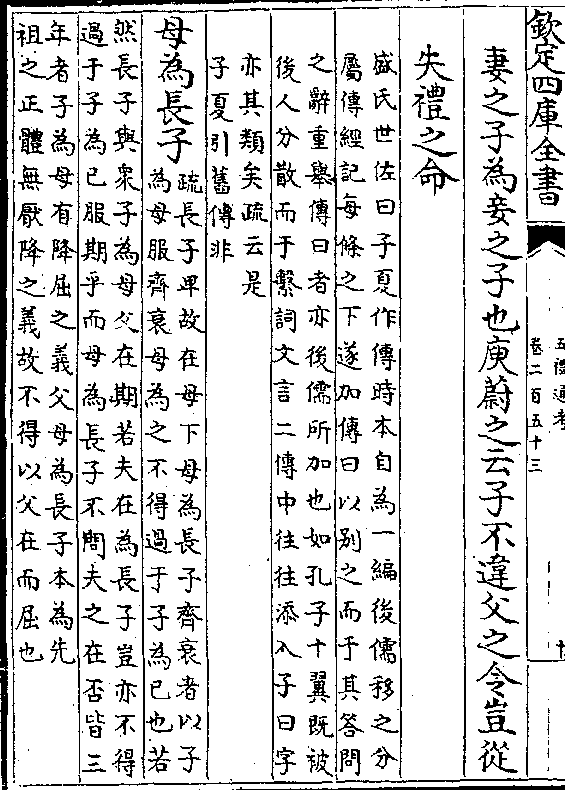 欽定四庫全書
五禮通考
卷二百五十三
妻之子為妾之子也庾蔚之云子不違父之令豈從
失禮之命
盛氏世佐曰子夏作傳時本自為一編後儒移之分
屬傳經記每條之下遂加傳曰以别之而于其答問
之辭重舉傳曰者亦後儒所加也如孔子十翼既被
後人分散而于繫詞文言二傳中往往添入子曰字
亦其類矣疏云是
子夏引舊傳非
母為長子
疏長子卑故在母下母為長子齊衰者以子
為母服齊衰母為之不得過于子為已也若
然長子與衆子為母父在期若夫在為長子豈亦不得
過于子為已服期乎而母為長子不問夫之在否皆三
年者子為母有降屈之義父母為長子本為先
祖之正體無厭降之義故不得以父在而屈也